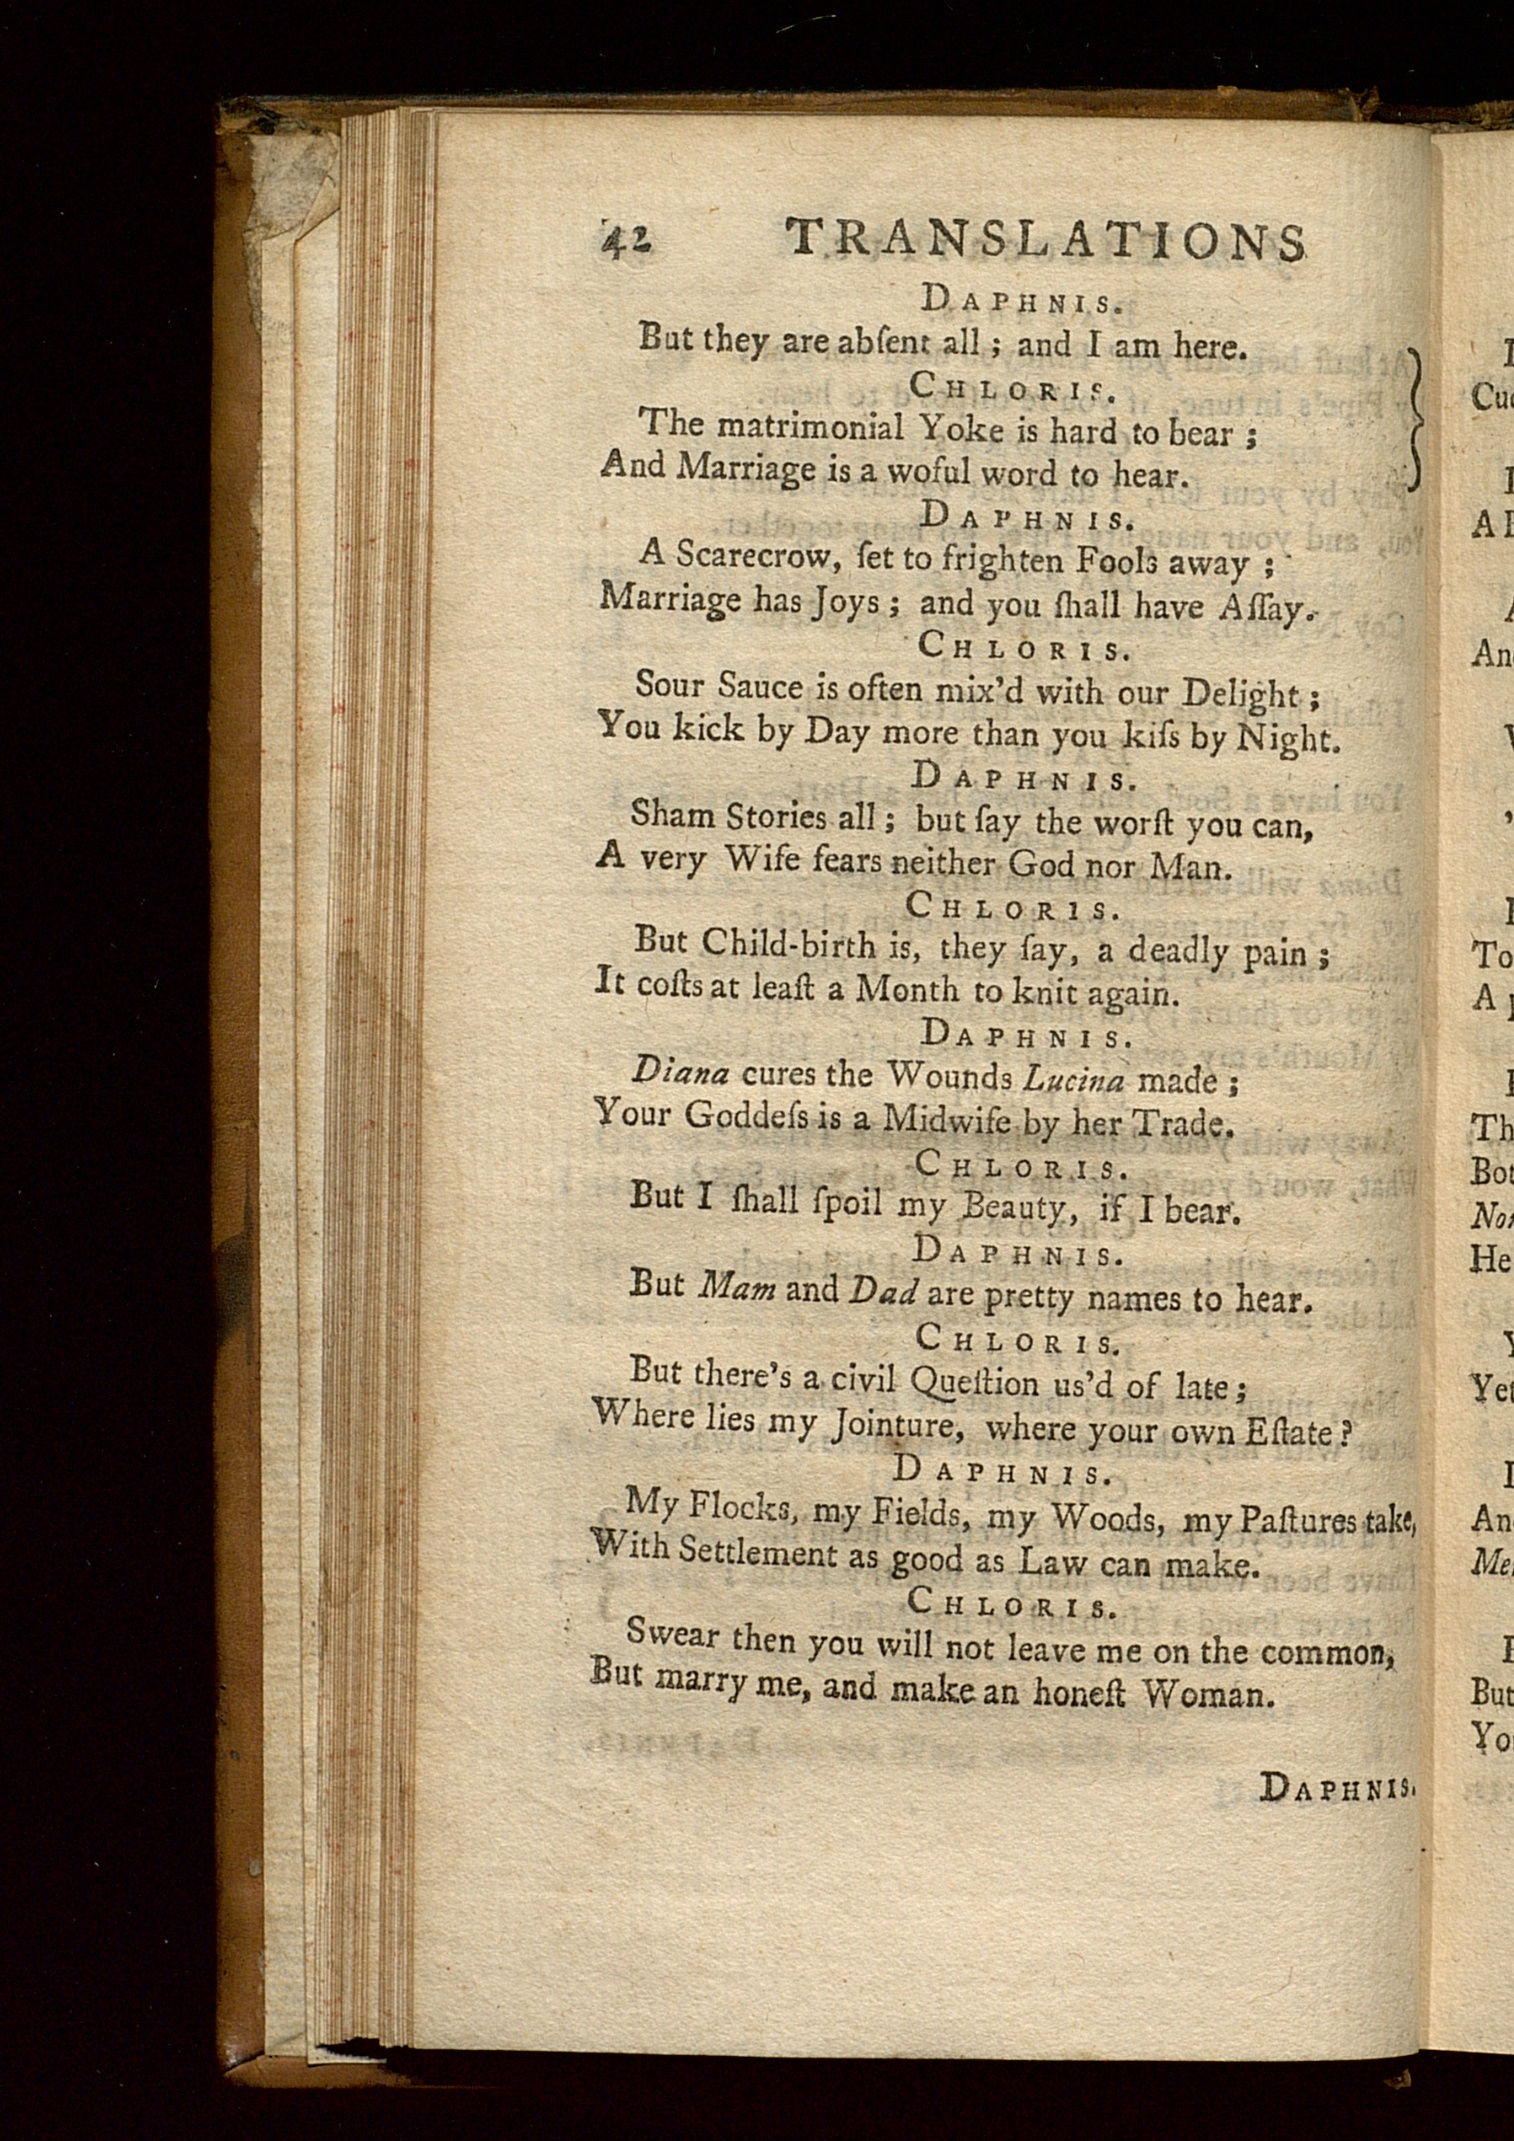 42 TRANSLATIONS
DAPHNIS.
But they are abſent all; and I am here.
CHLORIS.
The matrimonial Yoke is hard to bear;
And Marriage is a woful word to hear.
DAPHNIS.
A Scarecrow, ſet to frighten Fools away;
Marriage has Joys; and you ſhall have Aſſay.
CHLORIS.
Sour Sauce is often mix'd with our Delight;
You kick by Day more than you kiſs by Night.
DAPHNIS.
Sham Stories all; but ſay the worſt you can,
A very Wife fears neither God nor Man.
CHLORIS.
But Child-birth is, they ſay, a deadly pain;
It coſts at leaſt a Month to knit again.
DAPHNIS.
Diana cures the Wounds Lucina made;
Your Goddeſs is a Midwife by her Trade.
CHLORIS.
But I ſhall ſpoil my Beauty, if I bear.
DAPHNIS.
But Mam and Dad are pretty names to hear.
CHLORIS.
But there's a civil Queſtion us'd of late;
Where lies my Jointure, where your own Eſtate?
DAPHNIS.
My Flocks, my Fields, my Woods, my Paſtures take,
With Settlement as good as Law can make.
CHLORIS.
Swear then you will not leave me on the common,
But marry me, and make an honeſt Woman.
DAPHNIS.